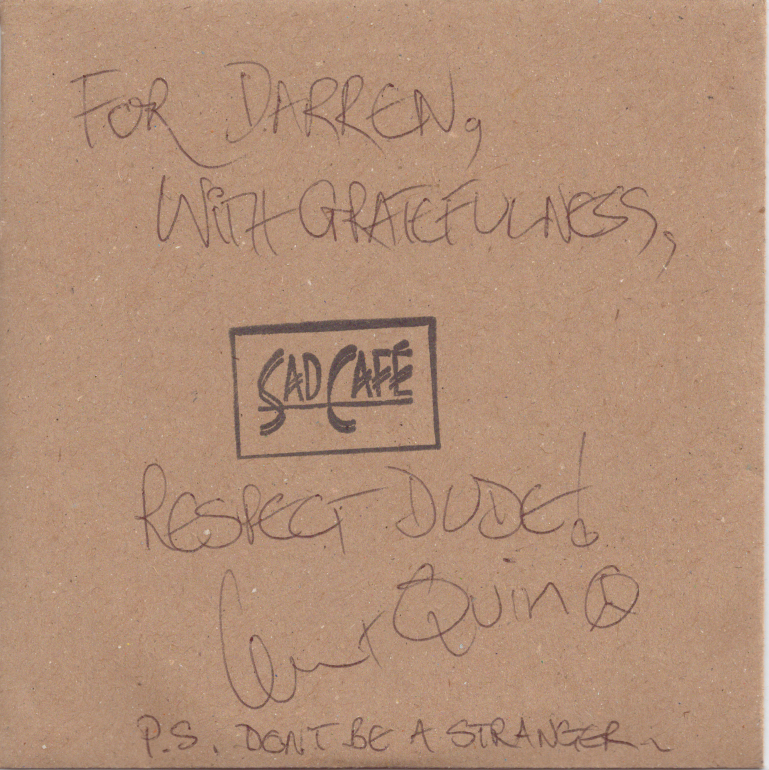 FOR DARREN,
WITH GRATEFULNESS,
SAD CAFÉ
RESPECT DUDE!
QUIN
P.S. DON'T BE A STRANGER